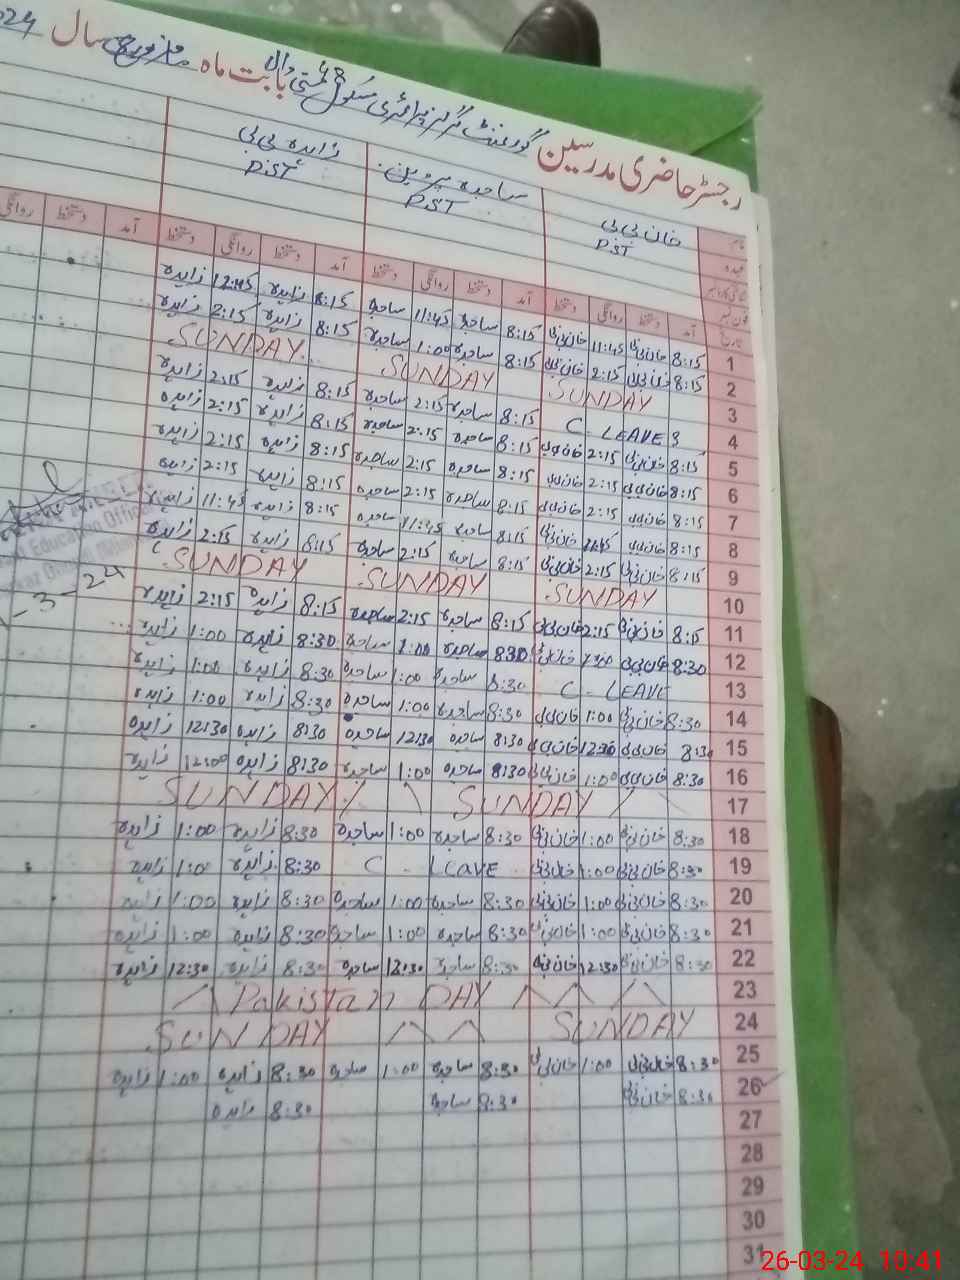 رجسٹر حاضری مدرسین گورنمنٹ گرلز پرائمری سکول بابت ماہ مارچ سال 024
نام خان بی بی ساجدہ پروین زاہدہ بی بی
عہدہ PST PST PST
فون نمبر
تاریخ آمد دستخط روانگی دستخط آمد دستخط روانگی دستخط آمد دستخط روانگی دستخط آمد دستخط روانگی
1 8:15 خان بی بی 11:45 خان بی بی 8:15 ساجدہ 11:45 ساجدہ 8:15 زاہدہ 12:45 زاہدہ
2 8:15 خان بی بی 2:15 خان بی بی 8:15 ساجدہ 1:00 ساجدہ 8:15 زاہدہ 2:15 زاہدہ
3 SUNDAY SUNDAY SUNDAY
4 C. LEAVE 8:15 ساجدہ 2:15 ساجدہ 8:15 زاہدہ 2:15 زاہدہ
5 8:15 خان بی بی 2:15 خان بی بی 8:15 ساجدہ 2:15 ساجدہ 8:15 زاہدہ 2:15 زاہدہ
6 8:15 خان بی بی 2:15 خان بی بی 8:15 ساجدہ 2:15 ساجدہ 8:15 زاہدہ 2:15 زاہدہ
7 8:15 خان بی بی 2:15 خان بی بی 8:15 ساجدہ 2:15 ساجدہ 8:15 زاہدہ 2:15 زاہدہ
8 8:15 خان بی بی 11:45 خان بی بی 8:15 ساجدہ 11:45 ساجدہ 8:15 زاہدہ 11:45 زاہدہ
9 8:15 خان بی بی 2:15 خان بی بی 8:15 ساجدہ 2:15 ساجدہ 8:15 زاہدہ 2:15 زاہدہ
10 SUNDAY SUNDAY SUNDAY
11 8:15 خان بی بی 2:15 خان بی بی 8:15 ساجدہ 2:15 ساجدہ 8:15 زاہدہ 2:15 زاہدہ
12 8:30 خان بی بی خان بی بی 8:30 ساجدہ 1:00 ساجدہ 8:30 زاہدہ 1:00 زاہدہ
13 C. LEAVE 8:30 ساجدہ 1:00 ساجدہ 8:30 زاہدہ 1:00 زاہدہ
14 8:30 خان بی بی 1:00 خان بی بی 8:30 ساجدہ 1:00 ساجدہ 8:30 زاہدہ 1:00 زاہدہ
15 8:30 خان بی بی 12:30 خان بی بی 8:30 ساجدہ 12:30 ساجدہ 8:30 زاہدہ 12:30 زاہدہ
16 8:30 خان بی بی 1:00 خان بی بی 8:30 ساجدہ 1:00 ساجدہ 8:30 زاہدہ 12:00 زاہدہ
17 SUNDAY SUNDAY
18 8:30 خان بی بی 1:00 خان بی بی 8:30 ساجدہ 1:00 ساجدہ 8:30 زاہدہ 1:00 زاہدہ
19 8:30 خان بی بی 1:00 خان بی بی C. Leave 8:30 زاہدہ 1:00 زاہدہ
20 8:30 خان بی بی 1:00 خان بی بی 8:30 ساجدہ 1:00 ساجدہ 8:30 زاہدہ 1:00 زاہدہ
21 8:30 خان بی بی 1:00 خان بی بی 8:30 ساجدہ 1:00 ساجدہ 8:30 زاہدہ 1:00 زاہدہ
22 8:30 خان بی بی 12:30 خان بی بی 8:30 ساجدہ 12:30 ساجدہ 8:30 زاہدہ 12:30 زاہدہ
23 Pakistan DAY
24 SUNDAY SUNDAY
25 8:30 خان بی بی 1:00 خان بی بی 8:30 ساجدہ 1:00 ساجدہ 8:30 زاہدہ 1:00 زاہدہ
26 8:30 خان بی بی 8:30 ساجدہ 8:30 زاہدہ
27
28
29
30
31
Education Officer
-3-24
26-03-24 10:41